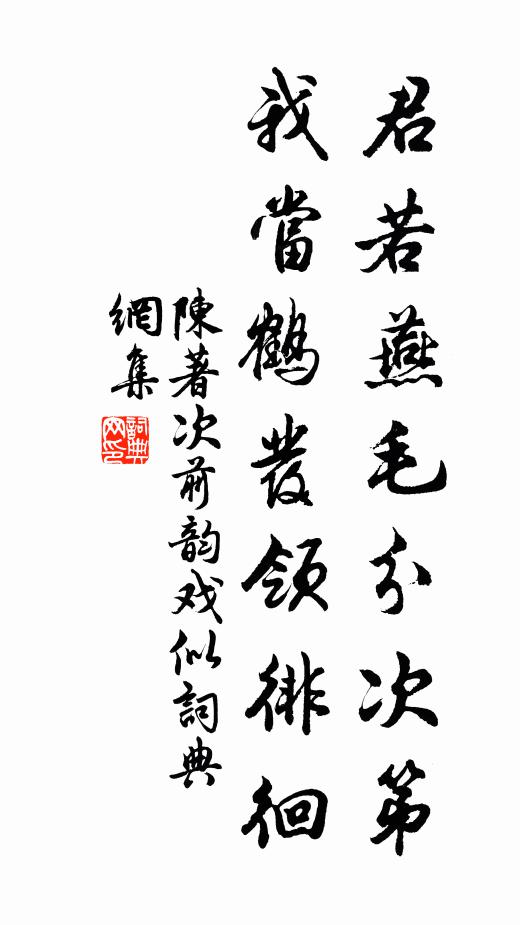 君若燕毛分次第
我當鶴發領徘徊
陳著次前韵戏似詞典
網集
詞典
网印